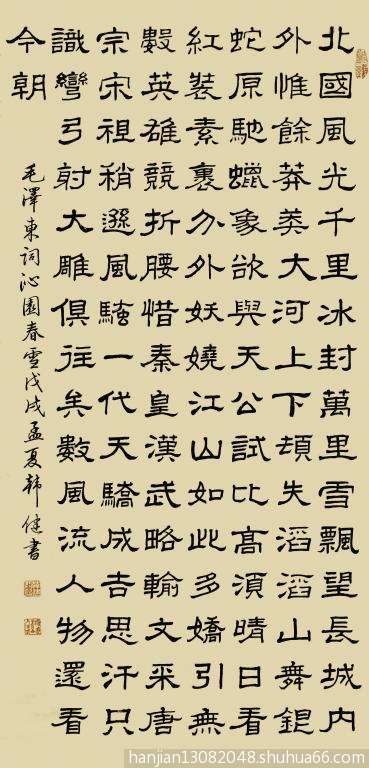 北國風光千里冰封萬里雪飄望長城内
外惟餘莽莽大河上下頓失滔滔山舞銀
蛇原馳蠟象欲與天公試比高須晴日看
紅裝素裹分外妖嬈江山如此多嬌引無
數英雄競折腰惜秦皇漢武略輸文采唐
宗宋祖稍遜風騷一代天驕成吉思汗只
識彎弓射大雕俱往矣數風流人物還看
今朝
毛澤東詞沁園春雪戊戌孟夏韓健書
hanjian13082048.shuhua66.com